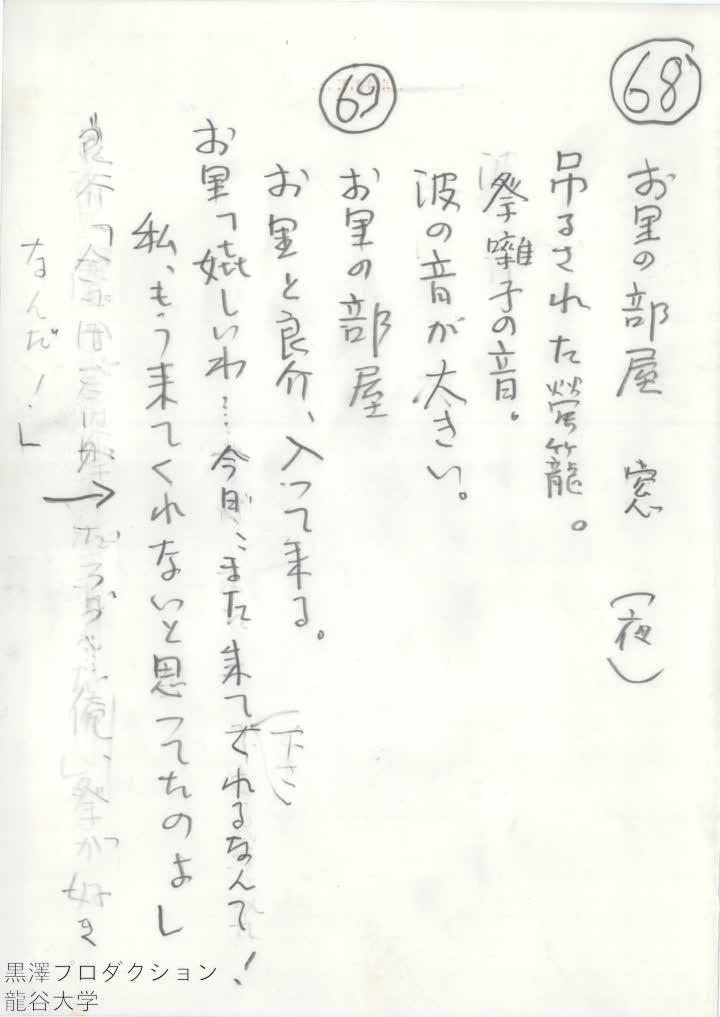 68
お里の部屋 窓 (夜)
吊るされた螢籠。
祭囃子の音。
波の音が大きい。
69
お里の部屋
お里と良介、入って来る。
お里「嬉しいわ…今日、また来てくれるなんて!
下さ
私、もう来てくれないと思ってたのよ」
良介「 俺、祭が好き
なんだ!」
黒澤プロダクション
龍谷大学